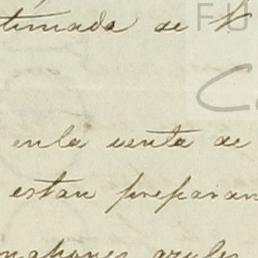 timada de V
en la venta de
estan preparan
mahones azules